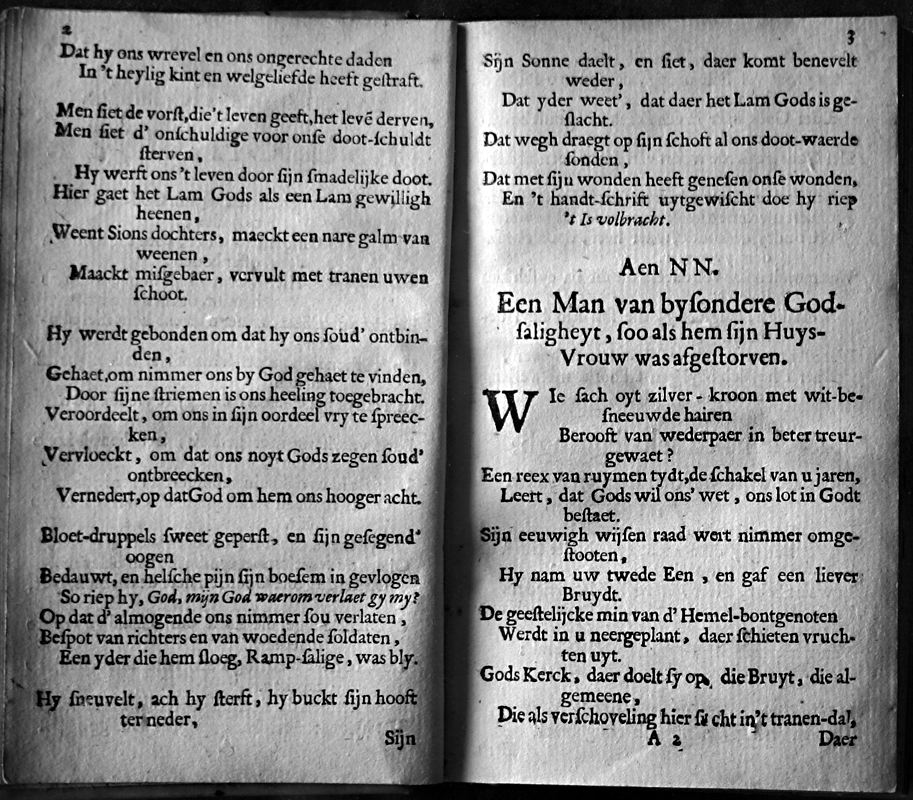 2
Dat hy ons wrevel en ons ongerechte daden
In 't heylig kint en welgeliefde heeft geſtraft.
Men ſiet de vorſt, die 't leven geeft, het levē derven,
Men ſiet d' onſchuldige voor onſe doot-ſchuldt
ſterven,
Hy werft ons 't leven door ſijn ſmadelijke doot.
Hier gaet het Lam Gods als een Lam gewilligh
heenen,
Weent Sions dochters, maeckt een nare galm van
weenen,
Maackt miſgebaer, vervult met tranen uwen
ſchoot.
Hy werdt gebonden om dat hy ons ſoud' ontbin-
den,
Gehaet, om nimmer ons by God gehaet te vinden,
Door ſijne ſtriemen is ons heeling toegebracht.
Veroordeelt, om ons in ſijn oordeel vry te ſpreec-
ken,
Vervloeckt, om dat ons noyt Gods zegen ſoud'
ontbreecken,
Vernedert, op dat God om hem ons hooger acht.
Bloet-druppels ſweet geperſt, en ſijn geſegend'
oogen
Bedauwt, en helſche pijn ſijn boeſem in gevlogen
So riep hy, God, mijn God waerom verlaet gy my?
Op dat d' almogende ons nimmer ſou verlaten,
Beſpot van richters en van woedende ſoldaten,
Een yder die hem ſloeg, Ramp-ſalige, was bly.
Hy ſneuvelt, ach hy ſterft, hy buckt ſijn hooft
ter neder,
Sijn
3
Sijn Sonne daelt, en ſiet, daer komt benevelt
weder,
Dat yder weet', dat daer het Lam Gods is ge-
ſlacht.
Dat wegh draegt op ſijn ſchoft al ons doot-waerde
ſonden,
Dat met ſiju wonden heeft geneſen onſe wonden,
En 't handt-ſchrift uytgewiſcht doe hy riep
't Is volbracht.
Aen N N.
Een Man van byſondere God-
ſaligheyt, ſoo als hem ſijn Huys-
Vrouw was afgeſtorven.
WIe ſach oyt zilver-kroon met wit-be-
ſneeuwde hairen
Berooft van wederpaer in beter treur-
gewaet?
Een reex van ruymen tydt, de ſchakel van u jaren,
Leert, dat Gods wil ons' wet, ons lot in Godt
beſtaet.
Sijn eeuwigh wijſen raad wert nimmer omge-
ſtooten,
Hy nam uw twede Een, en gaf een liever
Bruydt.
De geeſtelijcke min van d' Hemel-bontgenoten
Werdt in u neergeplant, daer ſchieten vruch-
ten uyt.
Gods Kerck, daer doelt ſy op, die Bruyt, die al-
gemeene,
Die als verſchoveling hier ſucht in 't tranen-dal,
A 2 Daer